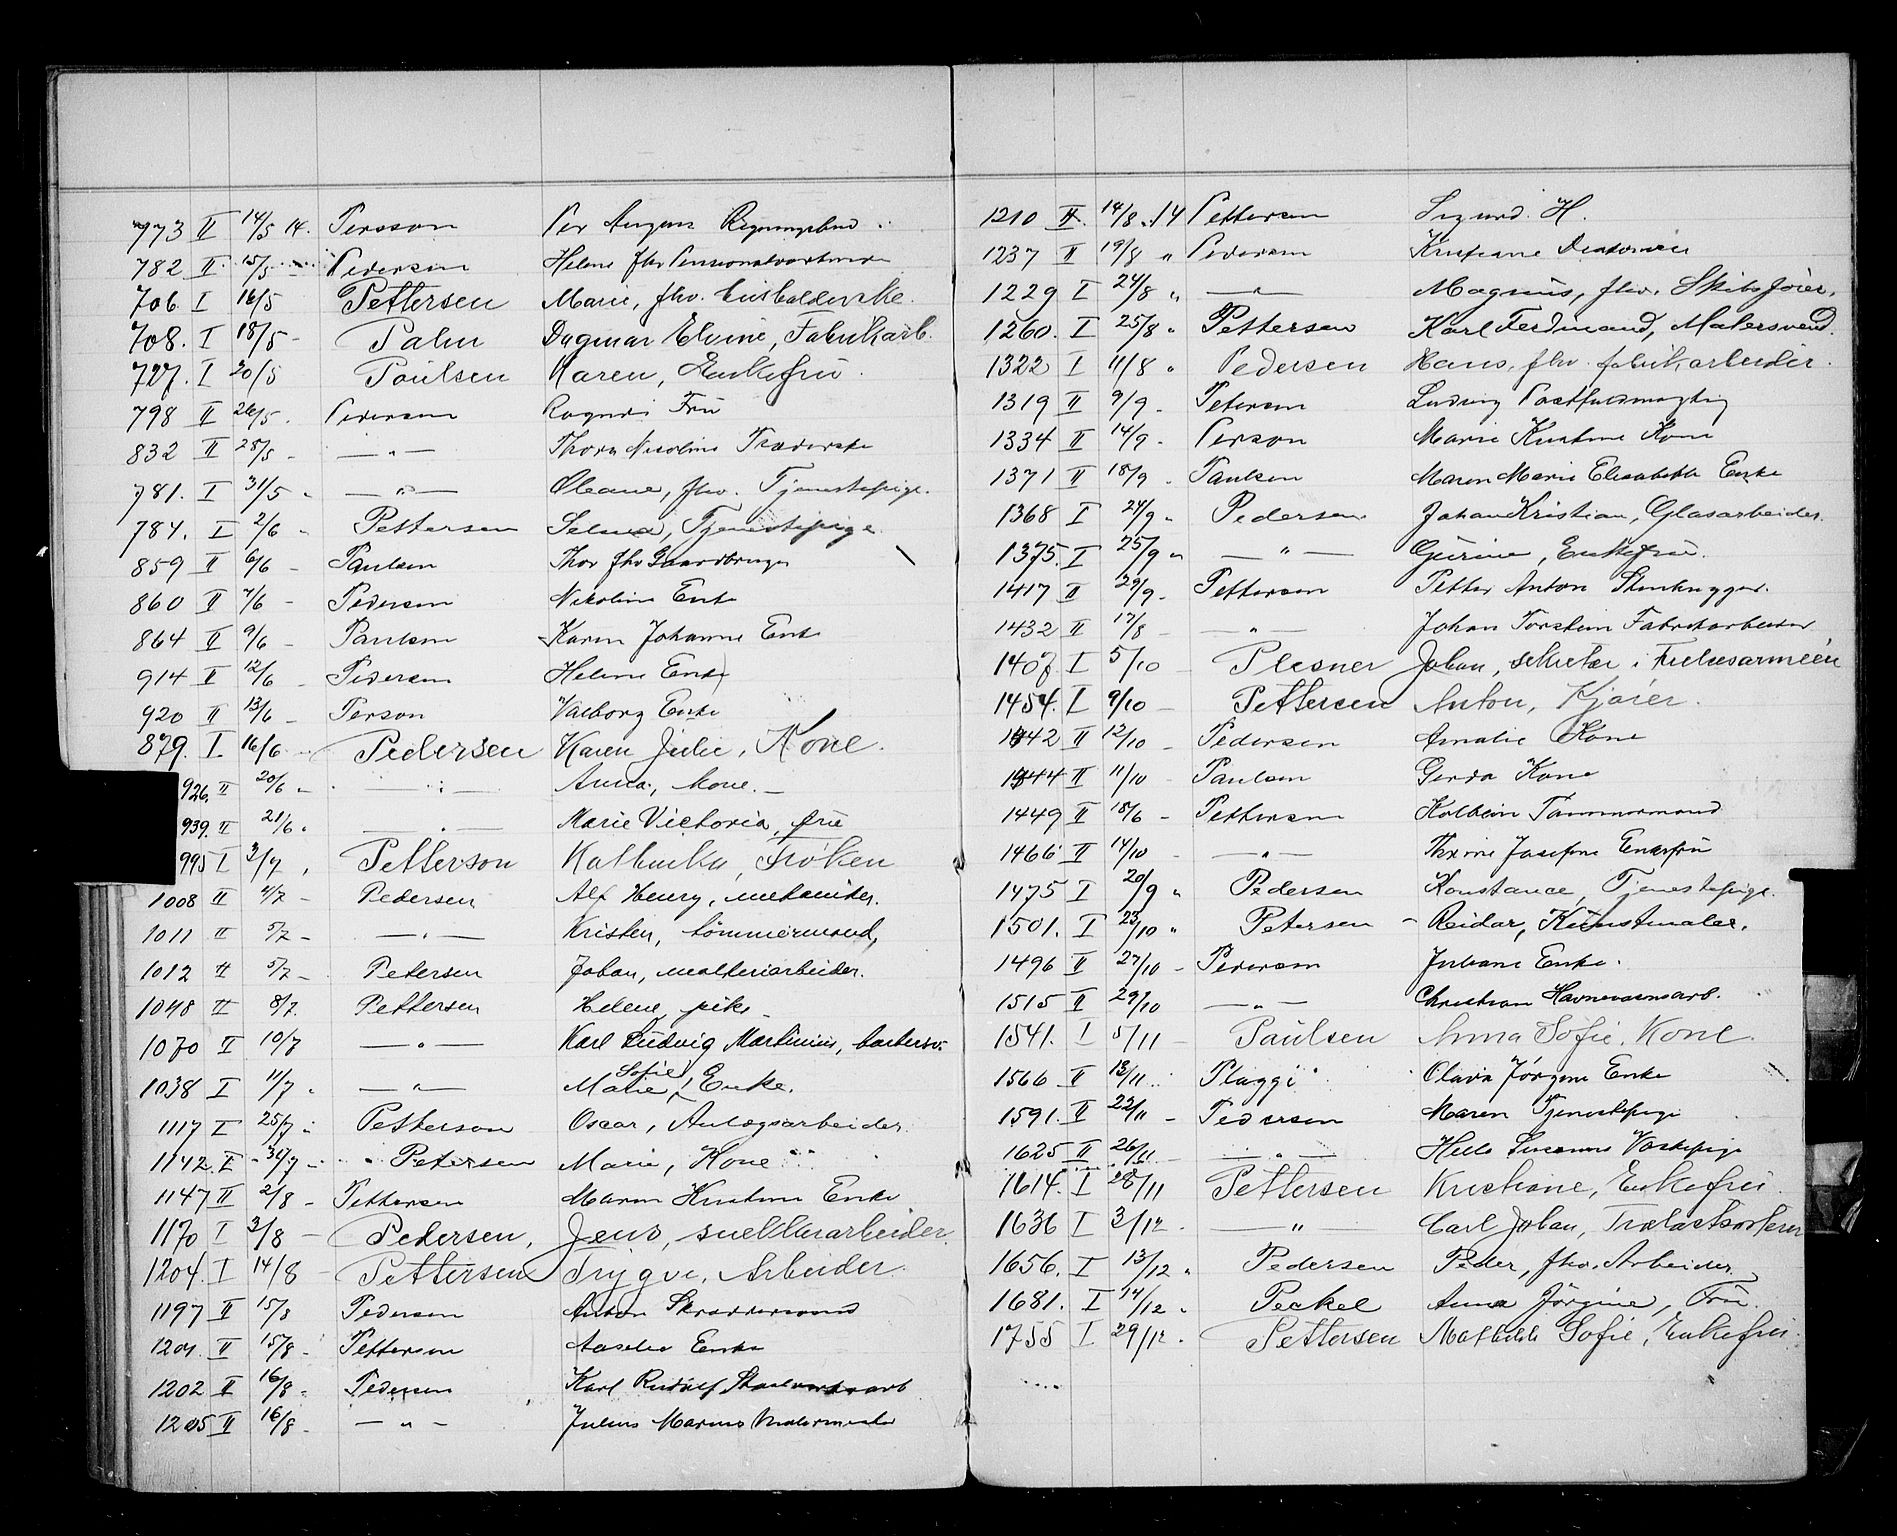 773 II 14/5 14. Persson Per August
782 II 15/5 Pedersen Helene fhv
706 I 16/5 Pettersen Marie, fhv. Husholderske.
708. I 18/5 - Palm Dagmar Elvine, Fabrikarb.
727. I 20/5 Paulsen Karen, Enkefru.
798 II 26/5. Pedersen Ragndi Fru
832 II 28/5 - — " — Thora Nicoline
781. I 31/5 " — " — Oleane, fhv. Tjenestepige.
784. I 2/6 " Pettersen Selma, Tjenestepige
859 II 6/6 - Paulsen Thor fhv Gaardbruger
860 II 7/6 - Pedersen Nikoline Enke
864 II 9/6 - Paulsen Karen Johanne Enke
914 II 12/6 - Pedersen Helene Enke
920 II 13/6 - Person Valborg Enke
879. I 16/6 - Pedersen Karen Julie, Kone.
926. II 20/6 " — " — Anna, Kone. -
939. II 21/6 " — " — Marie Victoria, frue
995 I 3/7 , Petterson Kathinka, Frøken
1008 II 4/7 - Pedersen Alf Henry, mekaniker.
1011 II 5/7 - — " — Kristen, tömmermand,
1012 II 5/7 - Petersen Johan, malteriarbeider.
1048 II 8/7. Pettersen Helene, pike -
1070 II 10/7 — " — Karl Ludvig Martinius,
1038 I 11/7 . — " — Marie Sofie, Enke.
1117 I 25/7 " Petterson Oscar, Anlægsarbeider.
1142. I - 30/7 - Petersen Marie, Kone
1147 II 2/8 - Pettersen Maren Kristine Enke
1170 I 3/8 - Pedersen, Jens,
1204. I 14/8 - Pettersen Trygve, Arbeider.
1197 II 15/8 Pedersen Anton Skræddersvend
1201 II 15/8 - Pettersen Enke
1202 II 16/8 - Pedersen Karl Rudolf
1205 II 16/8 - — " — Julius Marius Malermester
1210 II 14/8 . 14 Pettersen Sigurd H.
1237 II 19/8 " Pedersen Kristiane
1229 I 24/8 " — " — Magnus, fhv. Skibsfører.
1260. I 25/8 " Pettersen Karl Ferdinand, Malersvend.
1322 I 11/8 " Pedersen Hans, fhv. fabrikarbeider.
1319 II 9/9 - Petersen Ludvig Postfuldmægtig
1334 II 14/9 - Person Marie Kristine Kone
1371 II 18/9 - Paulsen Maren Marie Elisabeth Enke
1368 I 24/9 " Pedersen Johan Kristian, Glasarbeider.
1375. I 25/9 " — " — Gurine, Enkefru.
1417 II 29/9 - Pettersen Petter Anton Stenhugger.
1432 II 17/8 - — " — Johan Torstein Fabrikarbeider
1407. I 5/10 - Plesner Johan, sekretær i Frelsesarmeén
1454. I 9/10 - Pettersen Anton, Kjører.
1442 II 12/10 - Pedersen Amalie Kone
1444 II 11/10 - Paulsen Gerda Kone
1449 II 18/6 - Pettersen Kolbein Tømmermand
1466 II 14/10 - — " — Josefine Enkefru
1475 I 20/9 " Pedersen Konstance, Tjenestepige.
1501. I 23/10 " Petersen - Reidar, Kunstmaler.
1496 II 27/10 - Pedersen Juliane Enke.
1515 II 29/10 — " — Christian Havnevæsensarb.
1541. I 5/11 - Paulsen Anna Sofie, Kone.
1566 II 13/11 Plaggi Olava Jørgine Enke
1591. II 22/11 - Pedersen Maren Tjenestepige
1625 II 26/11 - — " — Vaskepige
1614. I 28/11 Pettersen Kristiane, Enkefru.
1636 I 3/12 - — " — Carl Johan,
1656. I 13/12 " Pedersen Peder, fhv. Arbeider
1681. I 14/12 " Peckel Anna Jörgine, Frue.
1755 I 29/12 . Pettersen Mathilde Sofie, Enkefru.